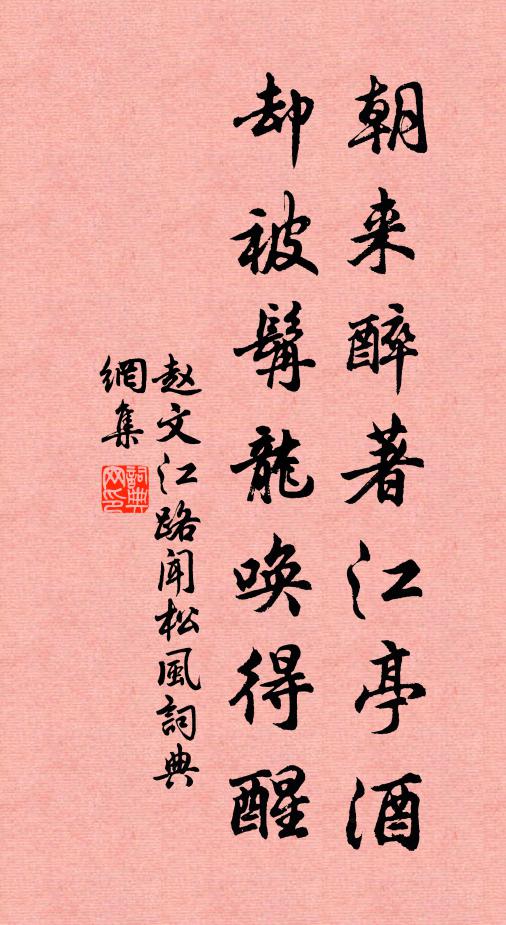 朝来醉著江亭酒
却被髯龍唤得醒
赵文江路闻松風詞典
網集
詞典
网印